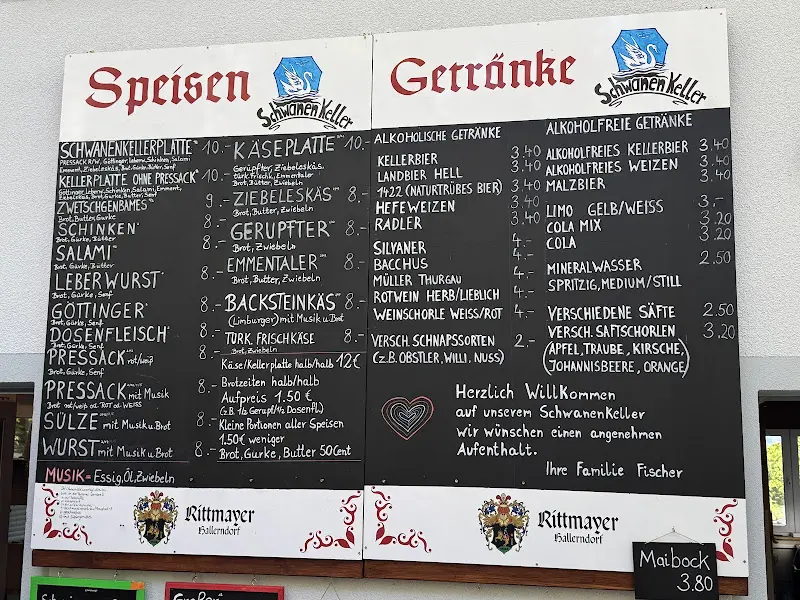 Speisen
Schwanenkeller
SCHWANENKELLERPLATTE 10.-
PRESSACK R/W, Göttinger, Leberw., Schinken, Salami
Emment., Ziebeleskäs, Brot, Gurke, Butter, Senf
KELLERPLATTE OHNE PRESSACK 10.-
Göttinger, Leberw., Schinken, Salami, Emment.,
Ziebeleskäs, Brot, Gurke, Butter, Senf
ZWETSCHGENBAMES 9.-
Brot, Butter, Gurke
SCHINKEN 8.-
Brot, Gurke, Bütter
SALAMI 8.-
Brot, Gurke, Bütter
LEBERWURST 8.-
Brot, Gurke, Senf
GÖTTINGER 8.-
Brot, Gurke, Senf
DOSENFLEISCH 8.-
Brot, Gurke, Senf
PRESSACK rot/weiß 8.-
PRESSACK mit Musik 8.-
Brot rot/weiß od. ROT od. WEISS
SÜLZE mit Musik u. Brot 8.-
WURST mit Musik u. Brot 8.-
MUSIK = Essig, Öl, Zwiebeln
KÄSEPLATTE 10.-
Gerupfter, Ziebeleskäs,
türk. Frischk., Emmentaler
Brot, Bütter, Zwiebeln
ZIEBELESKÄS 8.-
Brot, Butter, Zwiebeln
GERUPFTER 8.-
Brot, Zwiebeln
EMMENTALER 8.-
Brot, Butter, Zwiebeln
BACKSTEINKÄS 8.-
(Limburger) mit Musik u. Brot
TÜRK. FRISCHKÄSE 8.-
Brot, Zwiebeln
Käse/Kellerplatte halb/halb 12€
Brotzeiten halb/halb
Aufpreis 1.50 €
(z.B. 1/2 Gerupf/1/2 Dosenfl.)
Kleine Portionen aller Speisen
1.50€ weniger
Brot, Gurke, Butter 50 Cent
Rittmayer
Hallerndorf
Getränke
Schwanenkeller
ALKOHOLISCHE GETRÄNKE
KELLERBIER 3.40
LANDBIER HELL 3.40
1422 (NATURTRÜBES BIER) 3.40
HEFEWEIZEN 3.40
RADLER 3.40
SILVANER 4.-
BACCHUS 4.-
MÜLLER THURGAU 4.-
ROTWEIN HERB/LIEBLICH 4.-
WEINSCHORLE WEISS/ROT 4.-
VERSCH. SCHNAPSSORTEN 2.-
(Z.B. OBSTLER, WILLI, NUSS)
ALKOHOLFREIE GETRÄNKE
ALKOHOLFREIES KELLERBIER 3.40
ALKOHOLFREIES WEIZEN 3.40
MALZBIER 3.40
LIMO GELB/WEISS 3.-
COLA MIX 3.20
COLA 3.20
MINERALWASSER 2.50
SPRITZIG, MEDIUM/STILL
VERSCHIEDENE SÄFTE 2.50
VERSCH. SAFTSCHORLEN 3.20
(APFEL, TRAUBE, KIRSCHE,
JOHANNISBEERE, ORANGE)
Herzlich Willkommen
auf unserem Schwanenkeller
wir wünschen einen angenehmen
Aufenthalt.
Ihre Familie Fischer
Rittmayer
Hallerndorf
Maibock
3.80